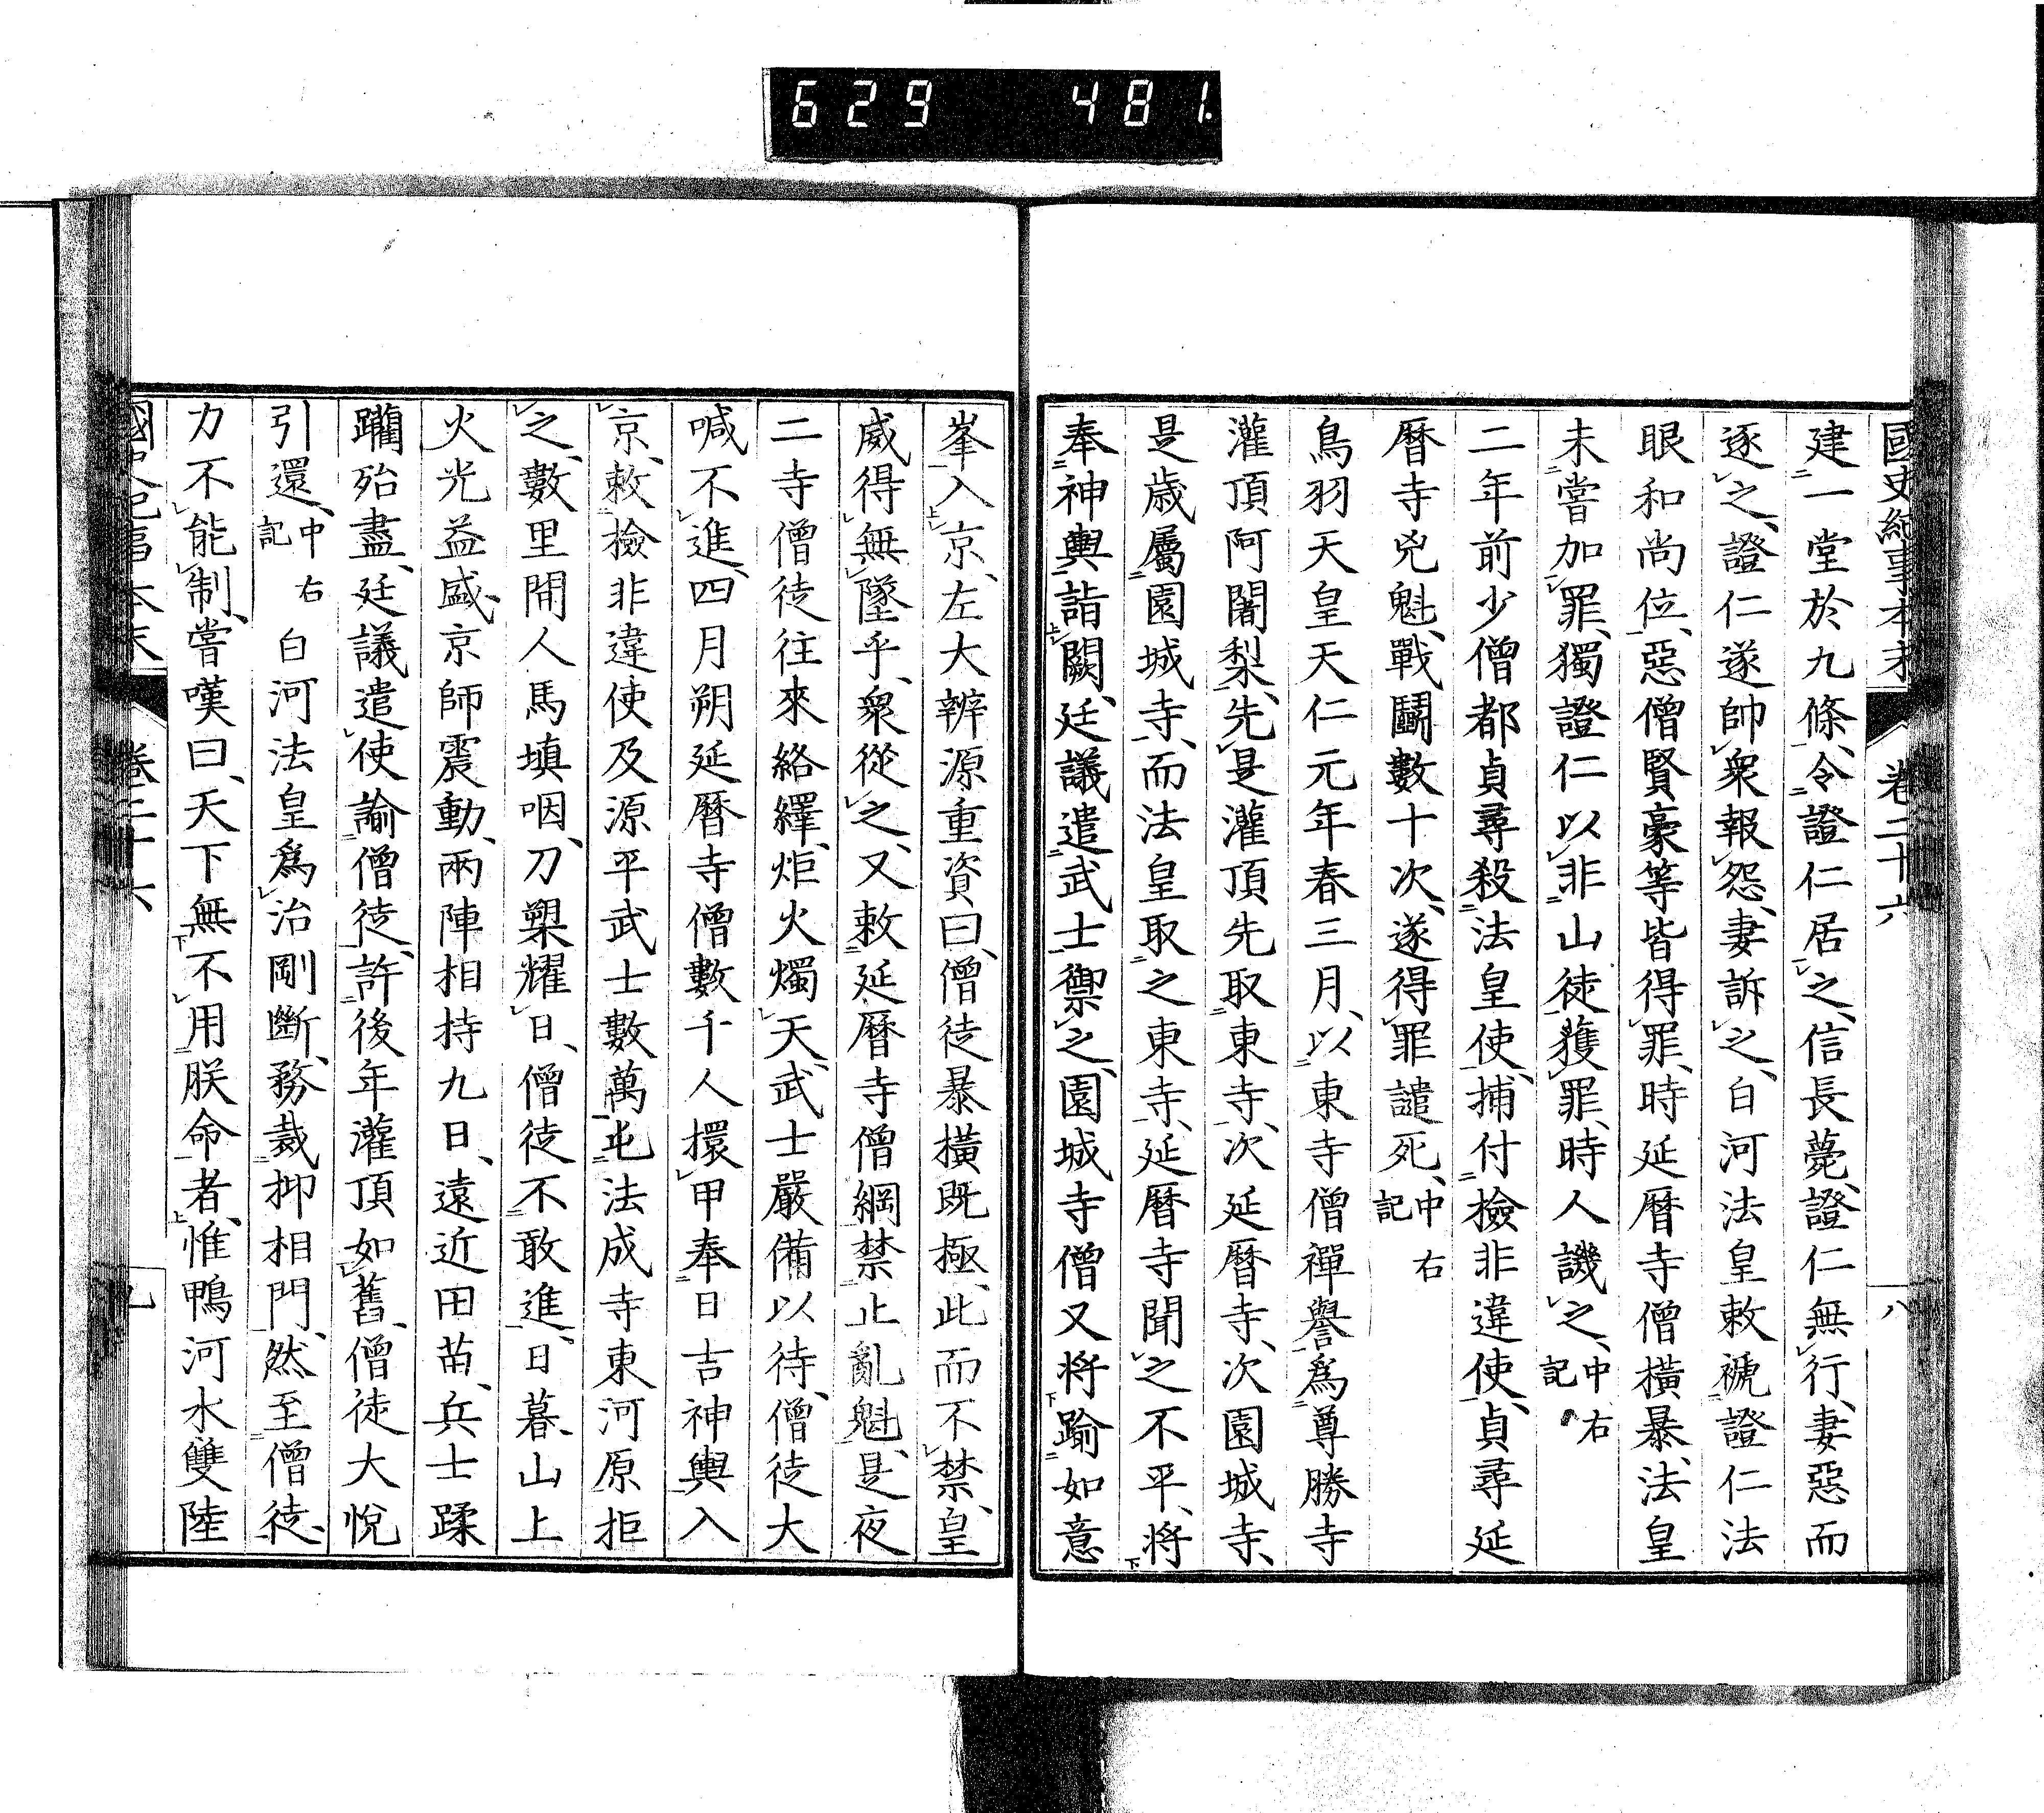 629 481.
國史紀事本末 卷二十六 八
建一堂於九條、令證仁居之、信長薨、證仁無行、妻惡而
逐之、證仁遂帥衆報怨、妻訴之、白河法皇敕褫證仁法
眼和尚位、惡僧賢豪等皆得罪、時延曆寺僧橫暴、法皇
未嘗加罪、獨證仁以非山徒獲罪、時人譏之、中右記
二年前少僧都貞尋殺法皇使、捕付檢非違使、貞尋延
曆寺兇魁、戰鬪數十次、遂得罪譴死、中右記
鳥羽天皇天仁元年春三月、以東寺僧禪譽爲尊勝寺
灌頂阿闍梨、先是灌頂先取東寺、次延曆寺、次園城寺、
是歲屬園城寺、而法皇取之東寺、延曆寺聞之不平、將
奉神輿詣闕、廷議遣武士禦之、園城寺僧又將踰如意
峯入京、左大辨源重資曰、僧徒暴橫既極、此而不禁、皇
威得無墜乎、衆從之、又敕延曆寺僧綱禁止亂魁、是夜
二寺僧徒往來絡繹、炬火燭天、武士嚴備以待、僧徒大
喊不進、四月朔延曆寺僧數千人擐甲奉日吉神輿入
京、敕檢非違使及源平武士數萬屯法成寺東河原拒
之、數里閒人馬填咽、刀槊耀日、僧徒不敢進、日暮、山上
火光益盛、京師震動、兩陣相持九日、遠近田苗、兵士蹂
躪殆盡、廷議遣使諭僧徒、許後年灌頂如舊、僧徒大悅
引還、中右記 白河法皇爲治剛斷、務裁抑相門、然至僧徒、
力不能制、嘗嘆曰、天下無不用朕命者、惟鴨河水雙陸
國史紀事本末 卷二十六 九